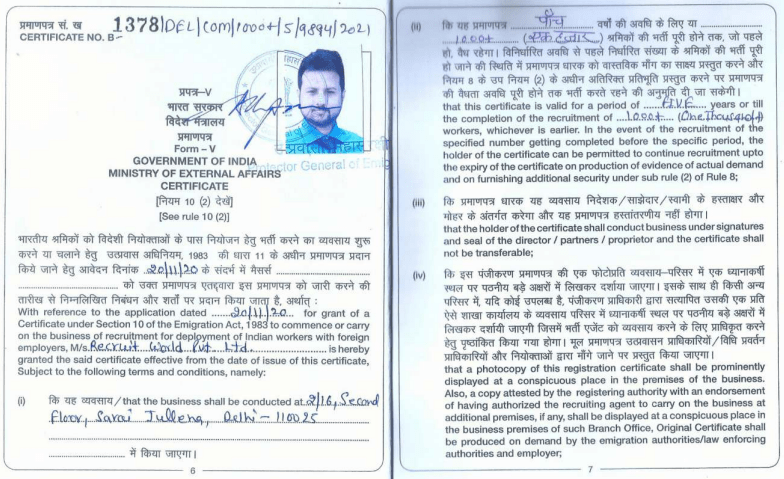 प्रमाणपत्र सं. ख 1378/DEL/COM/1000+/5/9894/2021
CERTIFICATE NO. B-
प्रपत्र–V
भारत सरकार
विदेश मंत्रालय
प्रमाणपत्र
Form – V
GOVERNMENT OF INDIA
MINISTRY OF EXTERNAL AFFAIRS
CERTIFICATE
[नियम 10 (2) देखें]
[See rule 10 (2)]
Protector General of Emig
भारतीय श्रमिकों को विदेशी नियोक्ताओं के पास नियोजन हेतु भर्ती करने का व्यवसाय शुरू
करने या चलाने हेतु उत्प्रवास अधिनियम, 1983 की धारा 11 के अधीन प्रमाणपत्र प्रदान
किये जाने हेतु आवेदन दिनांक 20/11/20 के संदर्भ में मैसर्स
को उक्त प्रमाणपत्र एतद्द्वारा इस प्रमाणपत्र को जारी करने की
तारीख से निम्नलिखित निबंधन और शर्तों पर प्रदान किया जाता है, अर्थात् :
With reference to the application dated 20/11/20 for grant of a
Certificate under Section 10 of the Emigration Act, 1983 to commence or carry
on the business of recruitment for deployment of Indian workers with foreign
employers, M/s Recruit World Pvt Ltd. is hereby
granted the said certificate effective from the date of issue of this certificate,
Subject to the following terms and conditions, namely:
(i) कि यह व्यवसाय / that the business shall be conducted at 2/16, Second
Floor, Sarai Jullena, Delhi – 110025
में किया जाएगा।
6
(ii) कि यह प्रमाणपत्र पाँच वर्षों की अवधि के लिए या
1000+ (एक हजार) श्रमिकों की भर्ती पूरी होने तक, जो पहले
हो, वैध रहेगा। विनिर्धारित अवधि से पहले निर्धारित संख्या के श्रमिकों की भर्ती पूरी
हो जाने की स्थिति में प्रमाणपत्र धारक को वास्तविक माँग का साक्ष्य प्रस्तुत करने और
नियम 8 के उप नियम (2) के अधीन अतिरिक्त प्रतिभूति प्रस्तुत करने पर प्रमाणपत्र
की वैधता अवधि पूरी होने तक भर्ती करते रहने की अनुमति दी जा सकेगी।
that this certificate is valid for a period of FIVE years or till
the completion of the recruitment of 1000+ (One Thousand+)
workers, whichever is earlier. In the event of the recruitment of the
specified number getting completed before the specific period, the
holder of the certificate can be permitted to continue recruitment upto
the expiry of the certificate on production of evidence of actual demand
and on furnishing additional security under sub rule (2) of Rule 8;
(iii) कि प्रमाणपत्र धारक यह व्यवसाय निदेशक/साझेदार/स्वामी के हस्ताक्षर और
मोहर के अंतर्गत करेगा और यह प्रमाणपत्र हस्तांतरणीय नहीं होगा।
that the holder of the certificate shall conduct business under signatures
and seal of the director / partners / proprietor and the certificate shall
not be transferable;
(iv) कि इस पंजीकरण प्रमाणपत्र की एक फोटोप्रति व्यवसाय–परिसर में एक ध्यानाकर्षी
स्थल पर पठनीय बड़े अक्षरों में लिखकर दर्शाया जाएगा। इसके साथ ही किसी अन्य
परिसर में, यदि कोई उपलब्ध है, पंजीकरण प्राधिकारी द्वारा सत्यापित उसकी एक प्रति
ऐसे शाखा कार्यालय के व्यवसाय परिसर में ध्यानाकर्षी स्थल पर पठनीय बड़े अक्षरों में
लिखकर दर्शायी जाएगी जिसमें भर्ती एजेंट को व्यवसाय करने के लिए प्राधिकृत करने
हेतु पृष्ठांकित किया गया होगा। मूल प्रमाणपत्र उत्प्रवासन प्राधिकारियों/विधि प्रवर्तन
प्राधिकारियों और नियोक्ताओं द्वारा माँगे जाने पर प्रस्तुत किया जाएगा।
that a photocopy of this registration certificate shall be prominently
displayed at a conspicuous place in the premises of the business.
Also, a copy attested by the registering authority with an endorsement
of having authorized the recruiting agent to carry on the business at
additional premises, if any, shall be displayed at a conspicuous place in
the business premises of such Branch Office, Original Certificate shall
be produced on demand by the emigration authorities/law enforcing
authorities and employer;
7